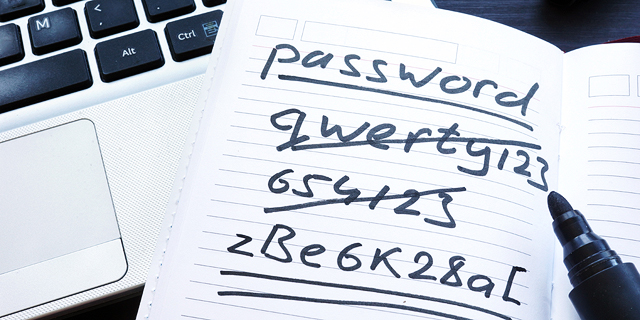 M
<
,
Alt
Ctrl
password
qwerty123
654123
zBe6K28a[